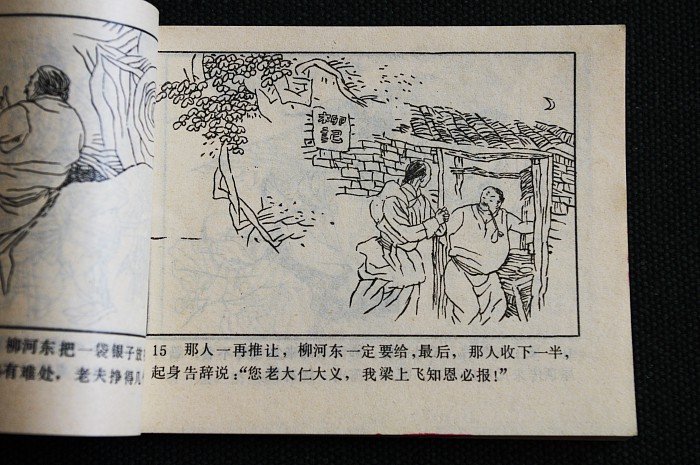 柳河东把一袋银子
有难处，老夫挣得几
柳记
15 那人一再推让，柳河东一定要给，最后，那人收下一半，
起身告辞说：“您老大仁大义，我梁上飞知恩必报！”